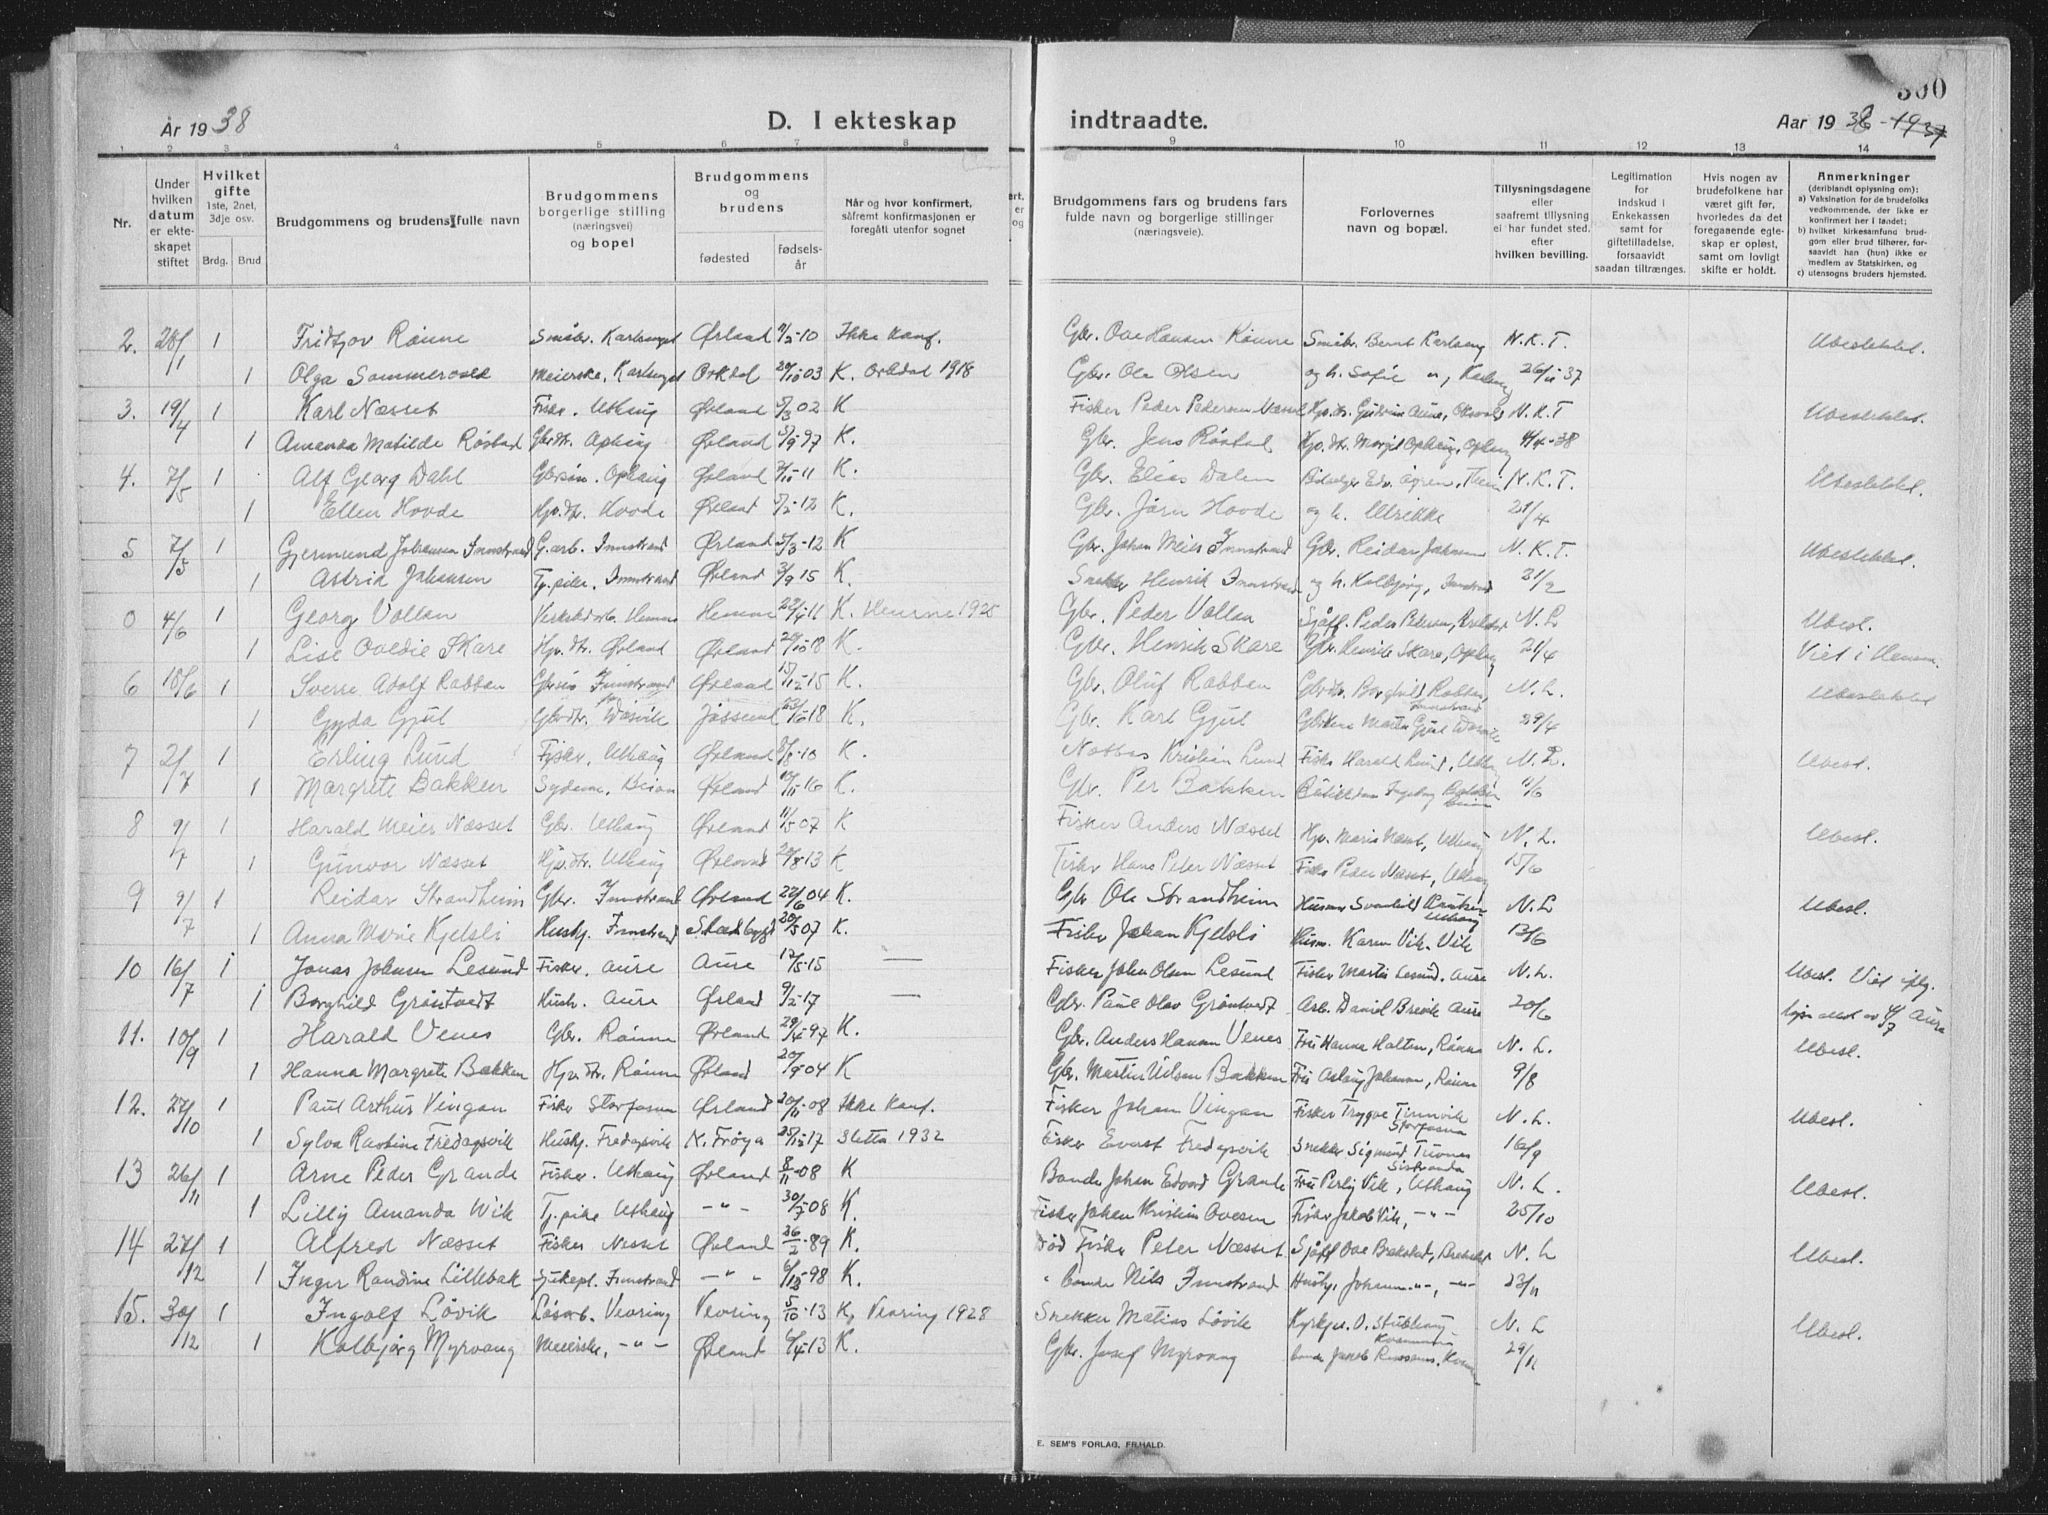 År 1938 D. I ekteskap indtraadte. Aar 1938-1937 300
1 2 3 4 5 6 7 8 9 10 11 12 13 14
Nr.
Under hvilken datum er ekteskapet stiftet
Hvilket gifte 1ste, 2net, 3dje osv. Brdg. Brud
Brudgommens og brudens fulle navn
Brudgommens borgerlige stilling (næringsvei) og bopel
Brudgommens og brudens fødested fødselsår
Når og hvor konfirmert, såfremt konfirmasjonen er foregått utenfor sognet
Brudgommens fars og brudens fars fulde navn og borgerlige stillinger (næringsveie).
Forlovernes navn og bopæl.
Tillysningsdagene eller saafremt tillysning ei har fundet sted. efter hvilken bevilling.
Legitimation for indskud i Enkekassen samt for giftetilladelse, forsaavidt saadan tiltrænges.
Hvis nogen av brudefolkene har været gift før, hvorledes da det foregaaende egteskap er opløst, samt om lovligt skifte er holdt.
Anmerkninger (deriblandt oplysning om): a) Vaksination for de brudefolks vedkommende, der ikke er konfirmert her i landet; b) hvilket kirkesamfund brudgom eller brud tilhører, forsaavidt han (hun) ikke er medlem av Statskirken, og c) utensogns bruders hjemsted.
2. 28/1 1 Fridtjov Rønne Småbr. Karlsenget Ørland 9/2-10 Ikke konf. Gbr. Ove Hansen Rønne Småbr. Bernt Karlseng N.K.T. Ubeslektet.
1 Olga Sommervold Meierske, Karlsenget Orkdal 20/10 03 K. Orkdal 1918 Gbr. Ole Olsen og h. Sofie 26/11 37
3. 19/4 1 Karl Næsset Fisker. Uthaug Ørland 5/3 02 K Fisker Peder Pedersen Næsset N.K.T Ubeslektet.
1 Amanda Matilde Røstad Gbrdtr. Ophaug Ørland 5/9 97 K. Gbr. Jens Røstad Hjv.dtr. Margit Ophaug, Ophaug 4/4-38
4. 7/5 1 Alf Georg Dahl Gbrsøn. Ophaug Ørland 7/10-11 K. Gbr. Elias Dalen N.K.T. Ubeslektet.
1 Ellen Hovde Hjv.dtr. Hovde Ørland 5/2-12 K. Gbr. Jørn Hovde og h. Ulrikke 21/4
5 7/5 1 Gjermund Johansen Innstrand G.arb. Innstrand Ørland 5/3-12 K Gbr. Johan Meier Innstrand Gbr. Reidar Johansen N.K.T. Ubeslektet.
1 Astrid Johansen Tj.pike. Innstrand Ørland 3/9 15 K. Snekker Henrik Innstrand og h. Kolbjørg, Innstrand 21/2
0 4/6 1 Georg Vollan Hemne Hemne K. Hemne 1925 Gbr. Peder Vollan Sjåff. Peder Petersen, N.L Ubesl.
1 Lise Ovedie Skare Hjv.dtr. Ørland Ørland 24/10 18 K. Gbr. Henrik Skare Gbr. Henrik Skare, Ophaug 21/4 Viet i Hemne.
6 18/6 1 Sverre Adolf Rabben Gbrsøn Innstrand Ørland 15/12-15 K. Gbr. Oluf Rabben Gbrdtr. Borghild Rabben, Innstrand N.L. Ubeslektet
1 Gyda Gjul Gbrdtr. Jøssund K. Gbr. Karl Gjul 29/4
7 2/7 1 Erling Lund Fisker, Uthaug Ørland 8/8-10 K. Kristian Lund Fisker Harald Lund, Uthaug N.L. Ubesl.
1 Margrete Bakken Syderne, Beian Ørland 10/11-16 K. Gbr. Per Bakken 11/6
8 9/7 1 Harald Meier Næsset Gbr. Uthaug Ørland 11/5 07 K Fisker Anders Næsset Hjv. Maria Næsset, Uthaug N.L. Ubesl.
1 Gunvor Næsset Hjv.dtr. Uthaug Ørland 20/8 13 K Fisker Hans Peter Næsset Fisker Peder Næsset, Uthaug 15/6
9 9/7 1 Reidar Strandheim Gbr. Innstrand Ørland 27/6 04 K. Gbr Ole Strandheim Husmor Svanhild Uthaug N.L Ubesl.
1 Anna Marie Kjelsli Hushj. Innstrand Stadsbygd 20/5 07 K. Fisker Johan Kjelsli Husm. Karen Vik. Vik 13/6
10 16/7 1 Jonas Johnsen Lesund Fisker. Aure Aure 17/5-15 — Fisker John Olsen Lesund Fisker Martin Lesund, Aure N.L. Ubesl. Viet iflg.
1 Borghild Grøntvedt Hush. Aure Ørland 9/2-17 — Gbr. Paul Olav Grøntvedt Arb. Daniel Breivik Aure 20/6 Aure
11. 10/9 1 Harald Venes Gbr. Rønne Ørland 29/4-97 K. Gbr. Anders Hansen Venes Fru Hanna Holten, Rønne N.L. Ubesl.
1 Hanna Margrete Bakken Hjv.dtr. Rønne Ørland 20/9 04 K Gbr. Martin Nilsen Bakken Fru Aslaug Johansen, Rønne 9/8
12. 27/10 1 Paul Arthur Vingan Fisker Storfosna Ørland 20/11-08 Ikke Konf. Fisker Johan Vingan Fisker Trygve Tinnvik Storfosna N.L. Ubesl.
1 Sylva Ravtine Fredagsvik Hushj. Fredagsvik N. Frøya 25/12-17 Sletta 1932 Fisker Evert Fredagsvik Snekker Sigmund Sistranda 16/9
13 26/11 1 Arne Peder Grande Fisker. Uthaug Ørland 8/11-08 K Bonde Johan Edvard Grande Fru Perly Vik, Uthaug N.L. Ubesl.
1 Lilly Amanda Wik Tj.pike Uthaug -"- 30/7-08 K. Fisker Johan Kristian Ovesen Fisker Jakob Vik, -"- 25/10
14 27/12 1 Alfred Næsset Fisker Nesset Ørland 26/2-89 K. Død Fisker Peter Næsset Sjåff Ove Brekstad, Brekstad N.L Ubesl.
1 Inger Randine Lillebak Sykepl. Innstrand -"- 6/12-98 K. " bonde Nils Innstrand Hushj. Johanne -"-, -"- 23/11
15. 30/12 1 Ingolf Løvik Løsarb. Vevring Vevring 5/10-13 K, Vevring 1928 Snekker Matias Løvik Kyrkjev. O. Stubhaug N.L Ubesl.
1 Kolbjørg Myrvang Meierske, -"- Ørland 6/4-13 K. Gbr. Josef Myrvang 29/11
E. SEM'S FORLAG, FR.HALD.